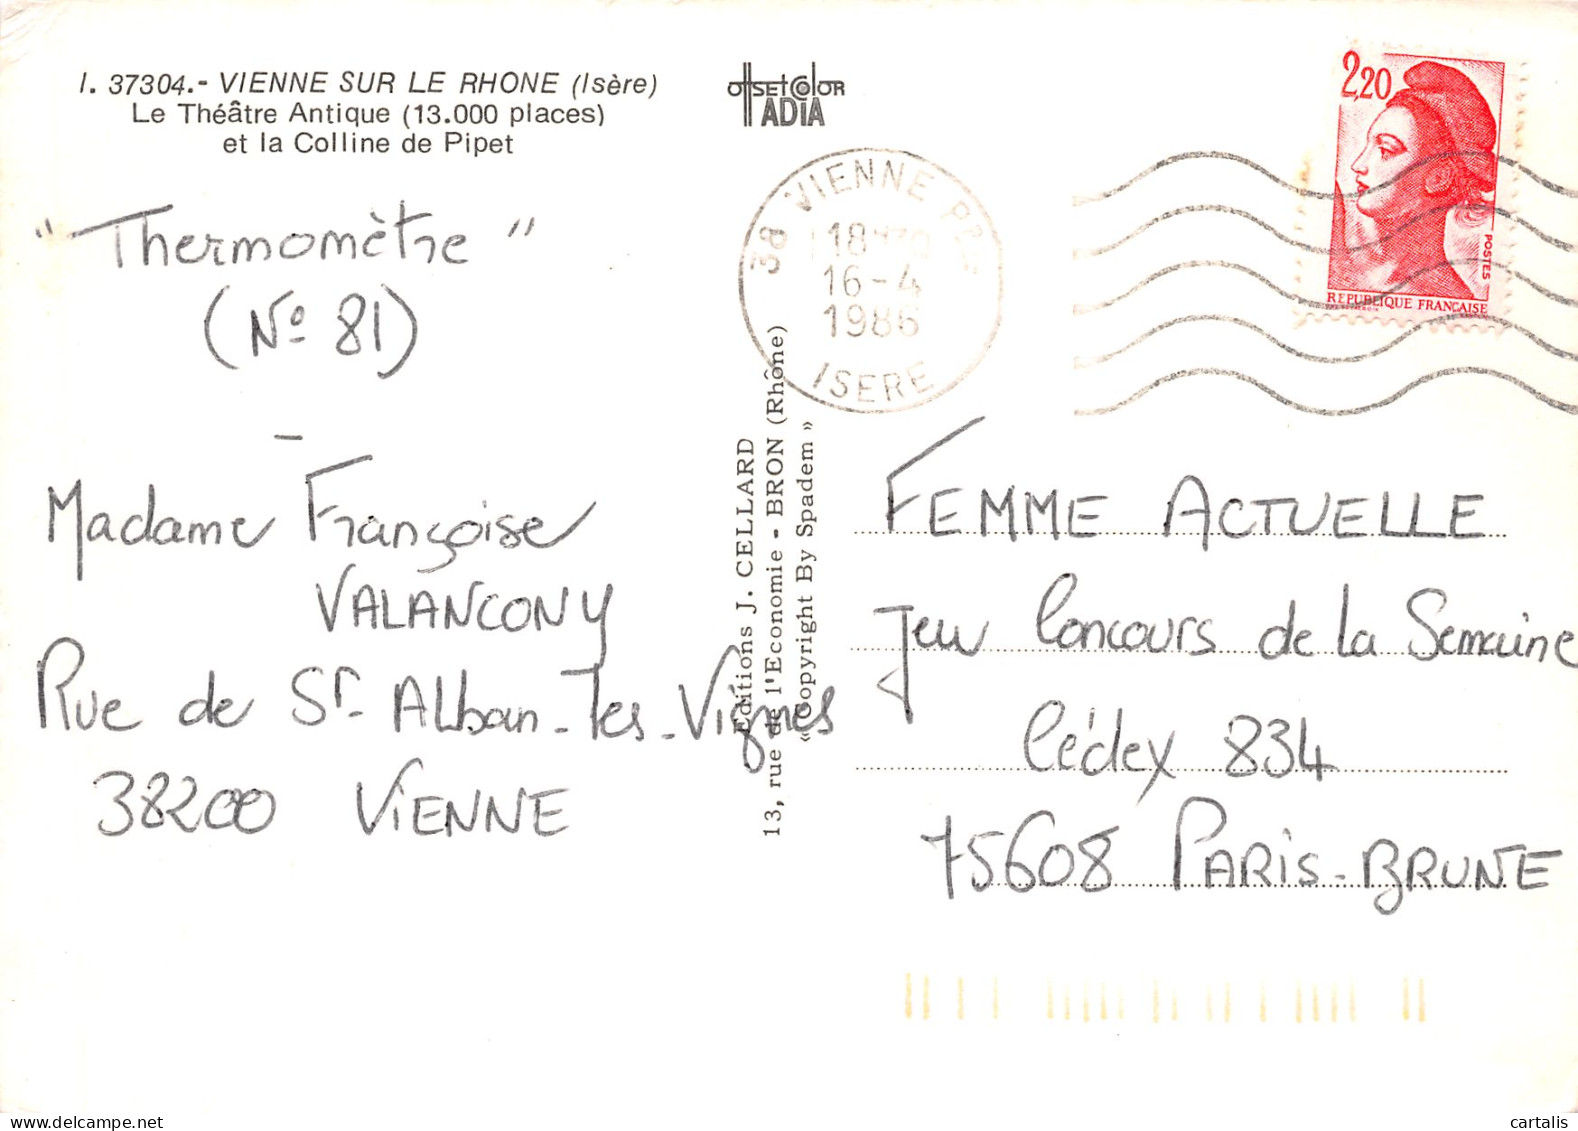 I. 37304.- VIENNE SUR LE RHONE (Isère)
Le Théâtre Antique (13.000 places)
et la Colline de Pipet
OffSETCOlOR
ADIA
"Thermomètre"
(No 81)
-
Madame Françoise
VALANCONY
Rue de St. Alban-les-Vignes
38200 VIENNE
38 VIENNE
16-4
1986
ISERE
Editions J. CELLARD
13, rue de l'Economie - BRON (Rhône)
« Copyright By Spadem »
2,20
POSTES
REPUBLIQUE FRANÇAISE
FEMME ACTUELLE
Jeu Concours de la Semaine
Cédex 834
75608 PARIS-BRUNE
cartalis
delcampe.net